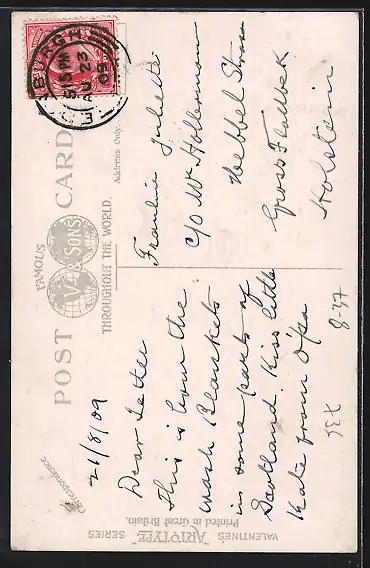 BURGH
5 15 PM
AU 23
09
POST CARD
FAMOUS
V. & SONS
THROUGHOUT THE WORLD.
Address Only.
Correspondence.
21/8/09
Dear
This is how the
wash Blankets
in some parts of
Scotland. Kiss little
Kate from O'pa
Fraulein Juliette
C/O Mr
Gross Flottbek
Holstein
8-37
VALENTINES' "ARTOTYPE" SERIES
Printed in Great Britain.